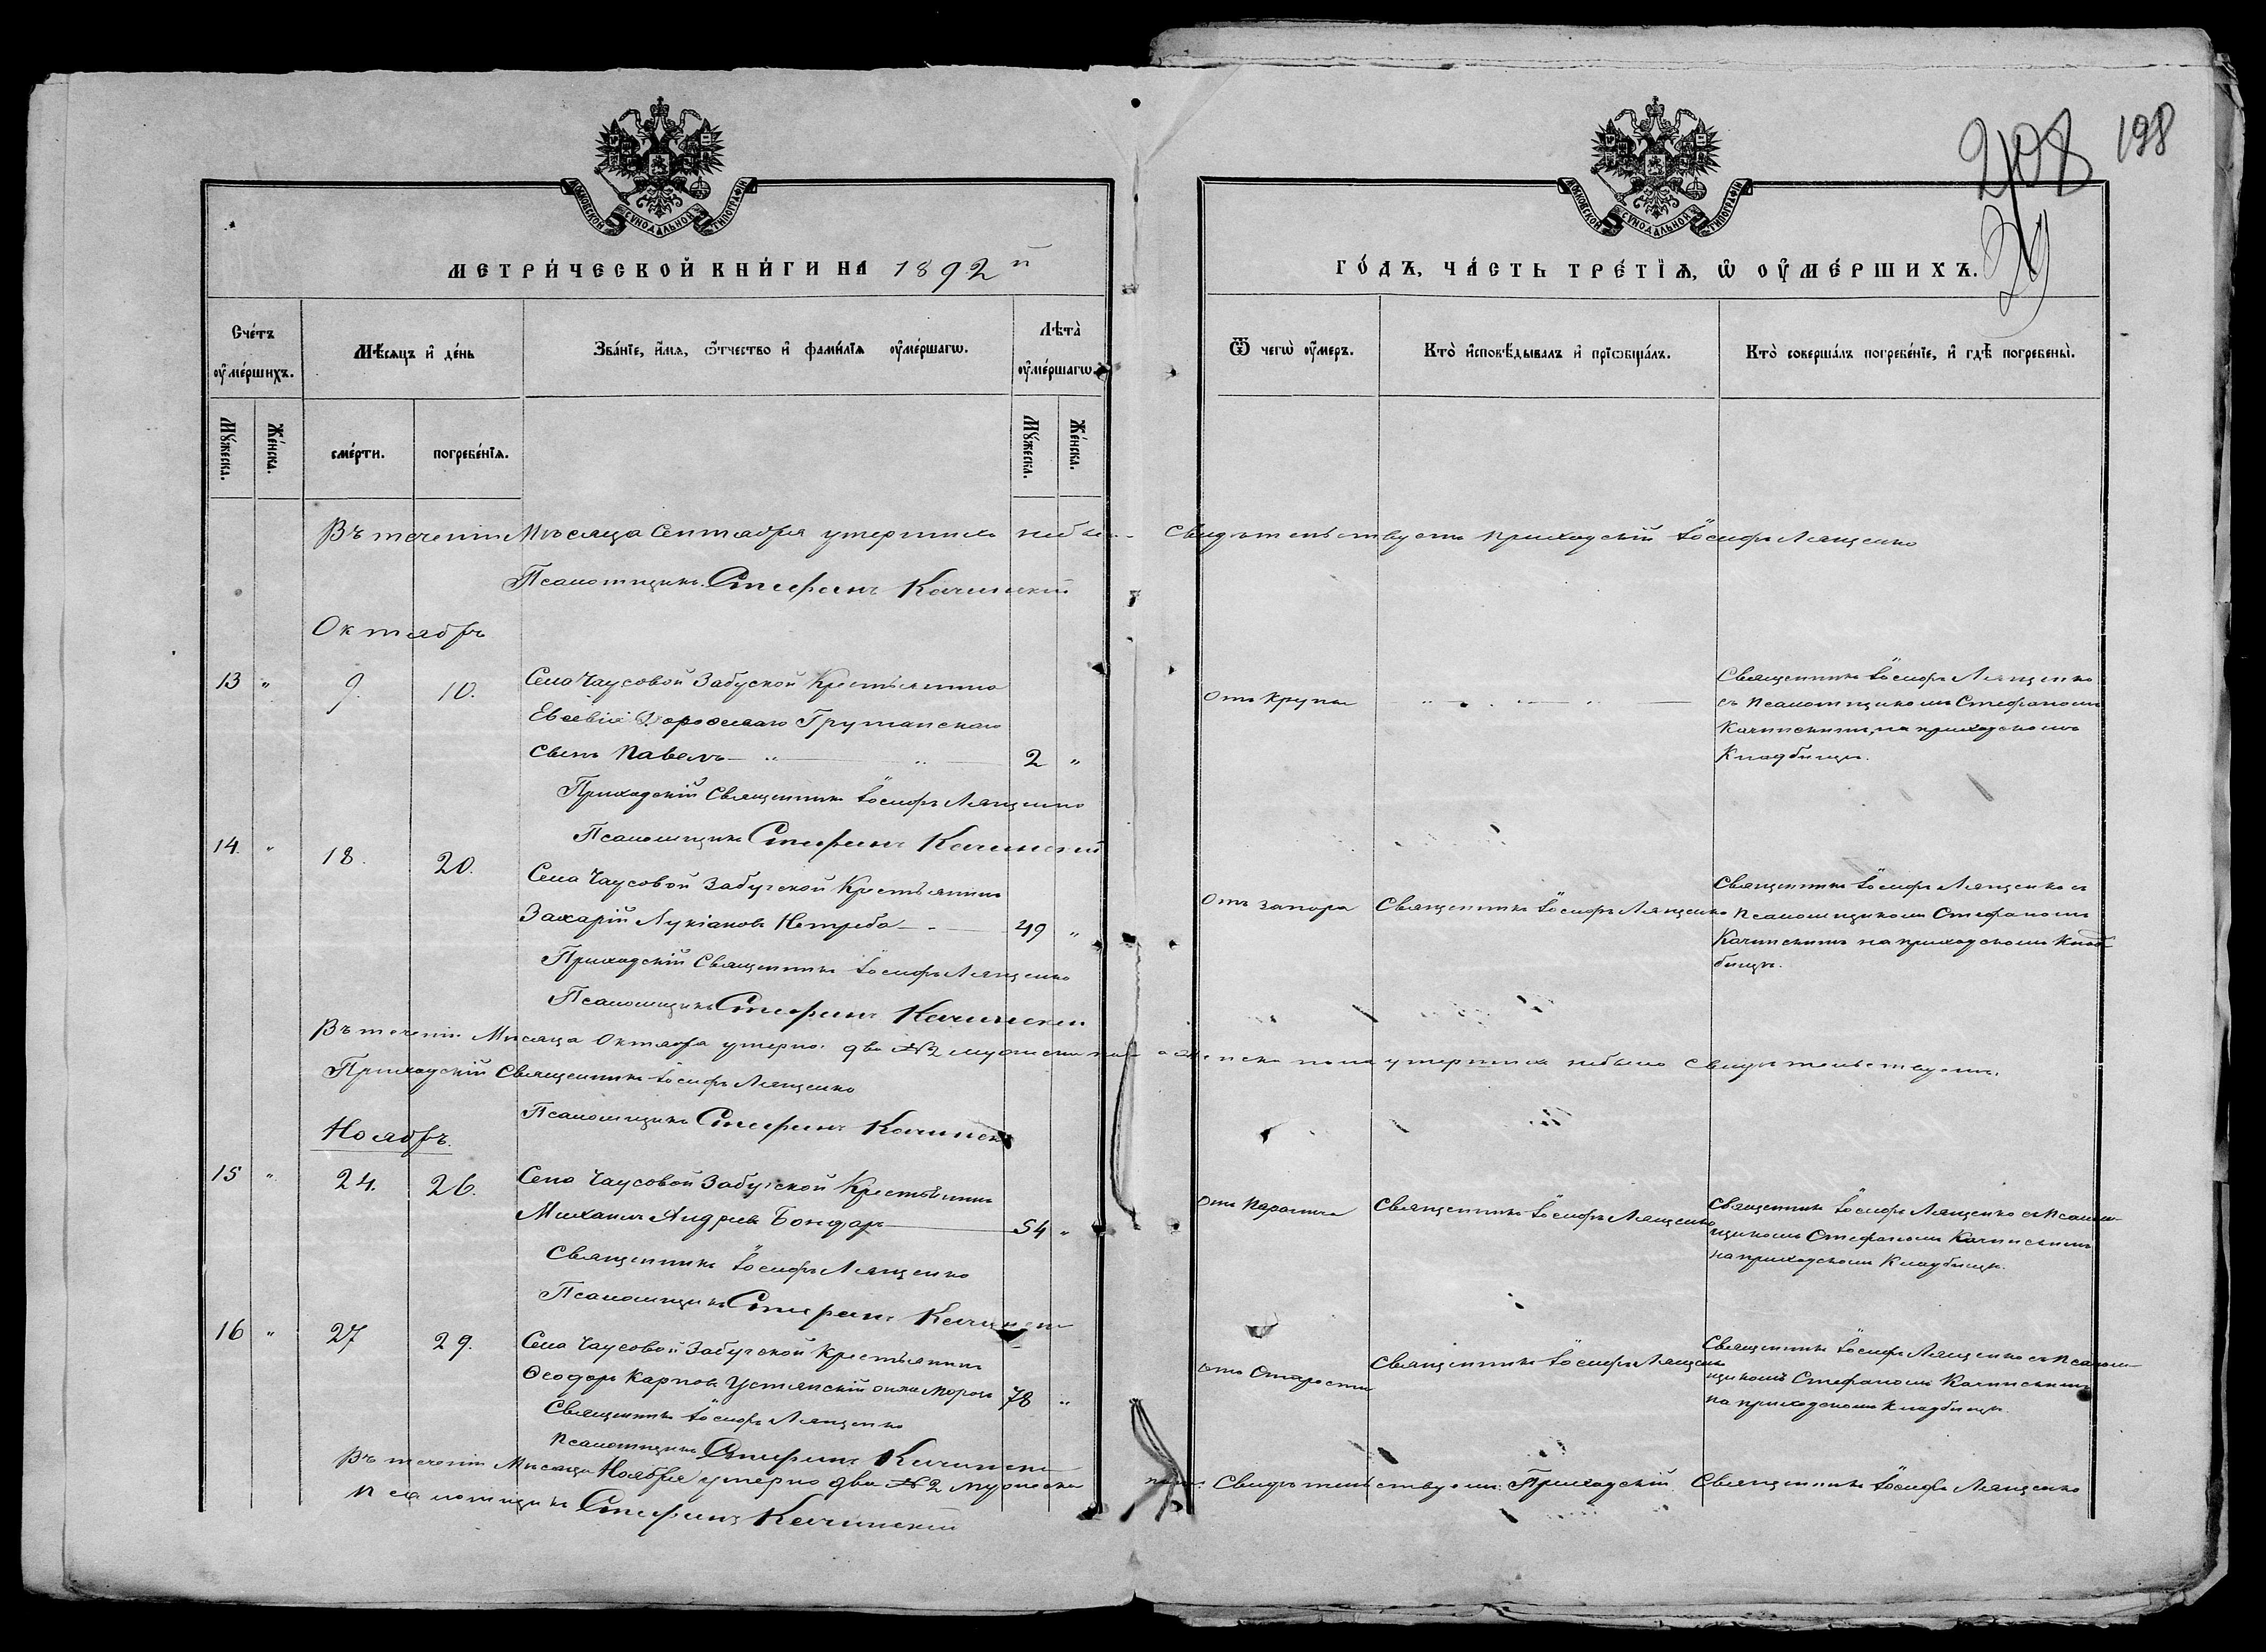 208 198
29
МОСКОВСКОЙ СѴНОДАЛЬНОЙ ТИПОГРАФІИ
МОСКОВСКОЙ СѴНОДАЛЬНОЙ ТИПОГРАФІИ
МЕТРИ́ЧЕСКОЙ КНИ́ГИ НА 1892й
ГО́ДЪ, ЧА́СТЬ ТРЕ́ТЇѦ, Ѡ ОУМЕ́РШИХЪ.
Сче́тъ оуме́ршихъ.
Мѣ́сѧцъ и де́нь
Зва́нїе, и́мѧ, ѻ́тчество и фами́лїѧ оуме́ршагѡ.
Лѣта̀ оуме́ршагѡ.
Ѿ чегѡ̀ оу́меръ.
Кто̀ исповѣ́дывалъ и прїѡбща́лъ.
Кто̀ соверша́лъ погребе́нїе, и гдѣ̀ погребены̀.
Мꙋ́жеска.
Же́нска.
сме́рти.
погребе́нїѧ.
Мꙋ́жеска.
Же́нска.
Въ теченіи Мѣсяца Сентября умершихъ небыло Свидѣтельствуетъ приходскій Іосифъ Лященко
Псаломщикъ Стефанъ Качинскій
Октябрь
13 " 9. 10. Села Чаусовой Забуской Крестьянина
Евсевія Грушанскаго
сынъ Павелъ — " — " — 2 "
Отъ Крупа — " — " —
Священникъ Іосифъ Лященко
съ псаломщикомъ Стефаномъ
Качинскимъ, на приходскомъ
Кладбищѣ.
Приходскій Священникъ Іосифъ Лященко
Псаломщикъ Стефанъ Качинскій
14. " 18. 20. Села Чаусовой Забугской Крестьянинъ
Захарій Лукіановъ Нетреба — 49 "
Отъ запора
Священникъ Іосифъ Лященко
Священникъ Іосифъ Лященко съ
псаломщикомъ Стефаномъ
Качинскимъ на приходскомъ клад-
бищѣ.
Приходскій Священникъ Іосифъ Лященко
Псаломщикъ Стефанъ Качинскій
Въ теченіи Мѣсяца Октября умерло: два №2 мужеска пола а женска пола умершихъ небыло Свидѣтельствуемъ.
Приходскій Священникъ Іосифъ Лященко
Псаломщикъ Стефанъ Качинскій
Ноябрь.
15 " 24. 26. Села Чаусовой Забугской Крестьянинъ
Михаилъ Андреевъ Бондарь — 54 "
Священникъ Іосифъ Лященко
Священникъ Іосифъ Лященко съ псалом-
щикомъ Стефаномъ Качинскимъ
на приходскомъ Кладбищѣ.
Священникъ Іосифъ Лященко
Псаломщикъ Стефанъ Качинскій
16 " 27 29. Села Чаусовой Забугской Крестьянинъ
Ѳеодоръ Карповъ Устянскій онже Морозъ 78 "
отъ Старости
Священникъ Іосифъ Лященко
Священникъ Іосифъ Лященко съ псалом-
щикомъ Стефаномъ Качинскимъ
на приходскомъ кладбищѣ.
Священникъ Іосифъ Лященко
Псаломщикъ Стефанъ Качинскій
Въ теченіи Мѣсяца Ноября умерло два №2 мужеска пола. Свидѣтельствуемъ: Приходскій Священникъ Іосифъ Лященко
Псаломщикъ Стефанъ Качинскій